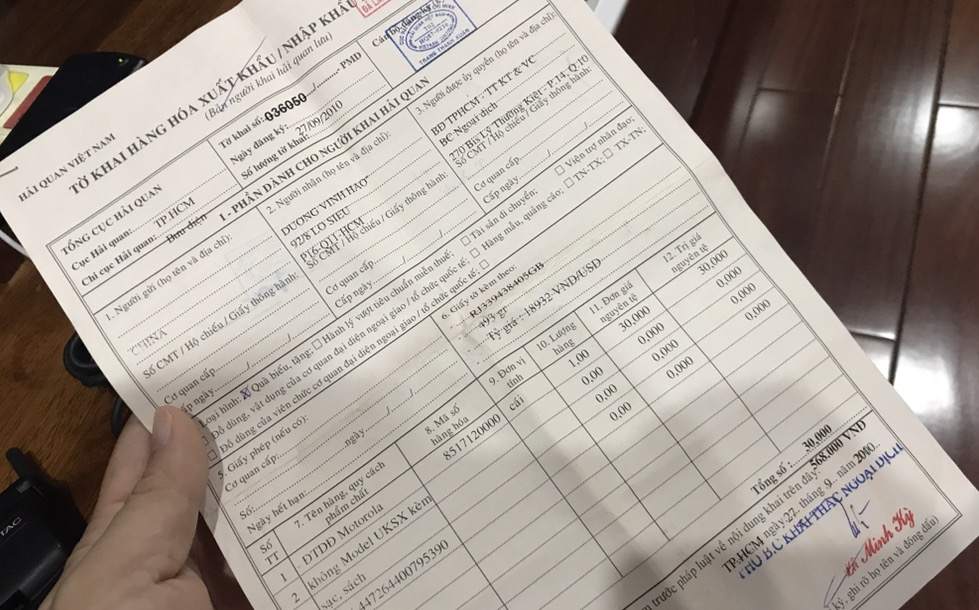 HẢI QUAN VIỆT NAM
TỜ KHAI HÀNG HÓA XUẤT KHẨU / NHẬP KHẨU
(Bản người khai hải quan lưu)
TỔNG CỤC HẢI QUAN
Cục Hải quan: TP.HCM
Chi cục Hải quan: Bưu điện
Tờ khai số: 036050 / - PMD
Ngày đăng ký: 27/09/2010
Số lượng tờ khai:
Cán bộ đăng ký
TRANG THANH XUÂN
I - PHẦN DÀNH CHO NGƯỜI KHAI HẢI QUAN
1. Người gửi (họ tên và địa chỉ):
CHINA
Số CMT / Hộ chiếu / Giấy thông hành:
Cơ quan cấp
Cấp ngày / /
2. Người nhận (họ tên và địa chỉ):
DUONG VINH HAO
92/8 LO SIEU
P16-Q11-HCM
Số CMT / Hộ chiếu / Giấy thông hành:
Cơ quan cấp
Cấp ngày / /
3. Người được ủy quyền (họ tên và địa chỉ):
BĐ TPHCM - TT KT & VC
BC Ngoại dịch
270 Bis Lý Thường Kiệt - P.14, Q.10
Số CMT / Hộ chiếu / Giấy thông hành:
Cơ quan cấp
Cấp ngày / /
Loại hình: X Quà biếu, tặng; Hành lý vượt tiêu chuẩn miễn thuế; Tài sản di chuyển; Viện trợ nhân đạo;
Đồ dùng, vật dụng của cơ quan đại diện ngoại giao / tổ chức quốc tế; Hàng mẫu, quảng cáo; TN-TX; TX-TN;
Đồ dùng của viên chức cơ quan đại diện ngoại giao / tổ chức quốc tế;
5. Giấy phép (nếu có):
Cơ quan cấp
Số: ngày / /
Ngày hết hạn: / /
6. Giấy tờ kèm theo:
RJ339438405GB
493 gr
Tỷ giá : 18932 VND/USD
Số TT
7. Tên hàng, quy cách phẩm chất
8. Mã số hàng hóa
9. Đơn vị tính
10. Lượng hàng
11. Đơn giá nguyên tệ
12. Trị giá nguyên tệ
1 ĐTDĐ Motorola 8517120000 cái 1,00 30,000 30,000
2 không Model UKSX kèm 0,00 0,000 0,000
sạc, sách 0,00 0,000 0,000
447264400795390 0,00 0,000 0,000
Tổng số : 30,000
568.000 VND
trước pháp luật về nội dung khai trên đây.
TP.HCM ngày 27 tháng 9 năm
THỦ B.C KHAI THÁC NGOẠI DỊCH
Minh Kỳ
ký, ghi rõ họ tên và đóng dấu)